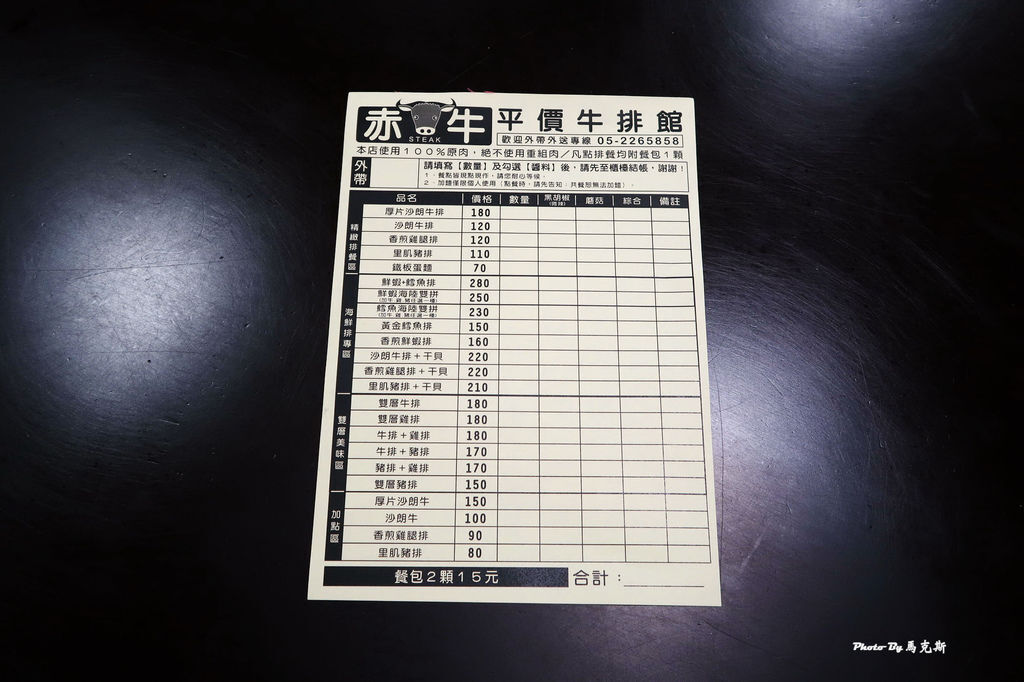 赤牛 STEAK 平價牛排館
歡迎外帶外送專線 05-2265858
本店使用100%原肉，絕不使用重組肉／凡點排餐均附餐包1顆
外帶
請填寫【數量】及勾選【醬料】後，請先至櫃檯結帳，謝謝！
1．餐點皆現點現作，請您耐心等候。
2．加麵僅限個人使用（點餐時，請先告知，共餐恕無法加麵）。
品名 價格 數量 黑胡椒(微辣) 蘑菇 綜合 備註
精緻排餐區
厚片沙朗牛排 180
沙朗牛排 120
香煎雞腿排 120
里肌豬排 110
鐵板蛋麵 70
海鮮排專區
鮮蝦+鱈魚排 280
鮮蝦海陸雙拼 250
(加牛.雞.豬任選一種)
鱈魚海陸雙拼 230
(加牛.雞.豬任選一種)
黃金鱈魚排 150
香煎鮮蝦排 160
沙朗牛排＋干貝 220
香煎雞腿排＋干貝 220
里肌豬排＋干貝 210
雙層美味區
雙層牛排 180
雙層雞排 180
牛排＋雞排 180
牛排＋豬排 170
豬排＋雞排 170
雙層豬排 150
加點區
厚片沙朗牛 150
沙朗牛 100
香煎雞腿排 90
里肌豬排 80
餐包2顆15元 合計：
Photo By 馬克斯